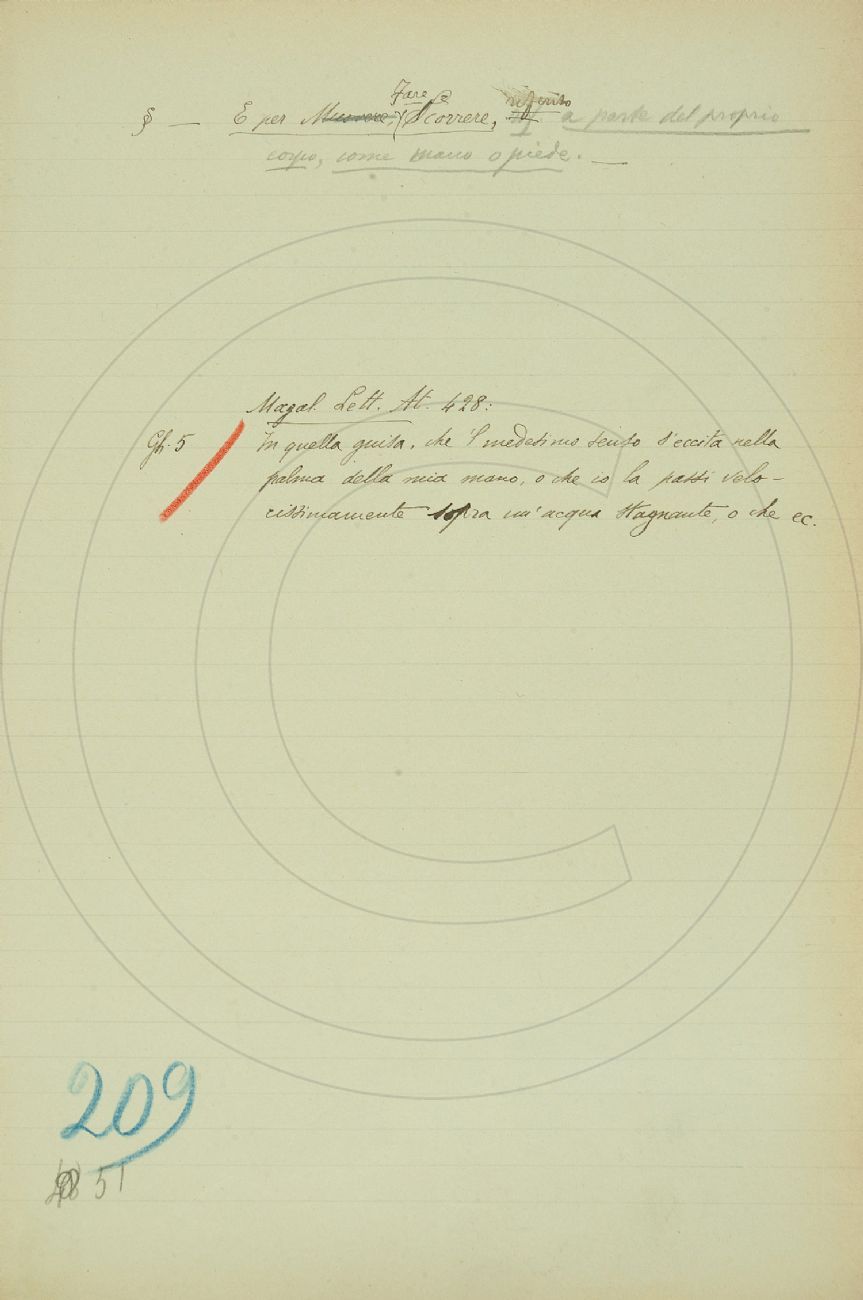 Fare
§ — E per Muovere, Scorrere, riferito a parte del proprio
corpo, come mano o piede. —
Magal. Lett. At. 428:
Gh. 5 In quella guisa, che 'l medesimo senso s'eccita nella
palma della mia mano, o che io la passi velo-
cissimamente sopra un'acqua stagnante, o che ec.
209
51